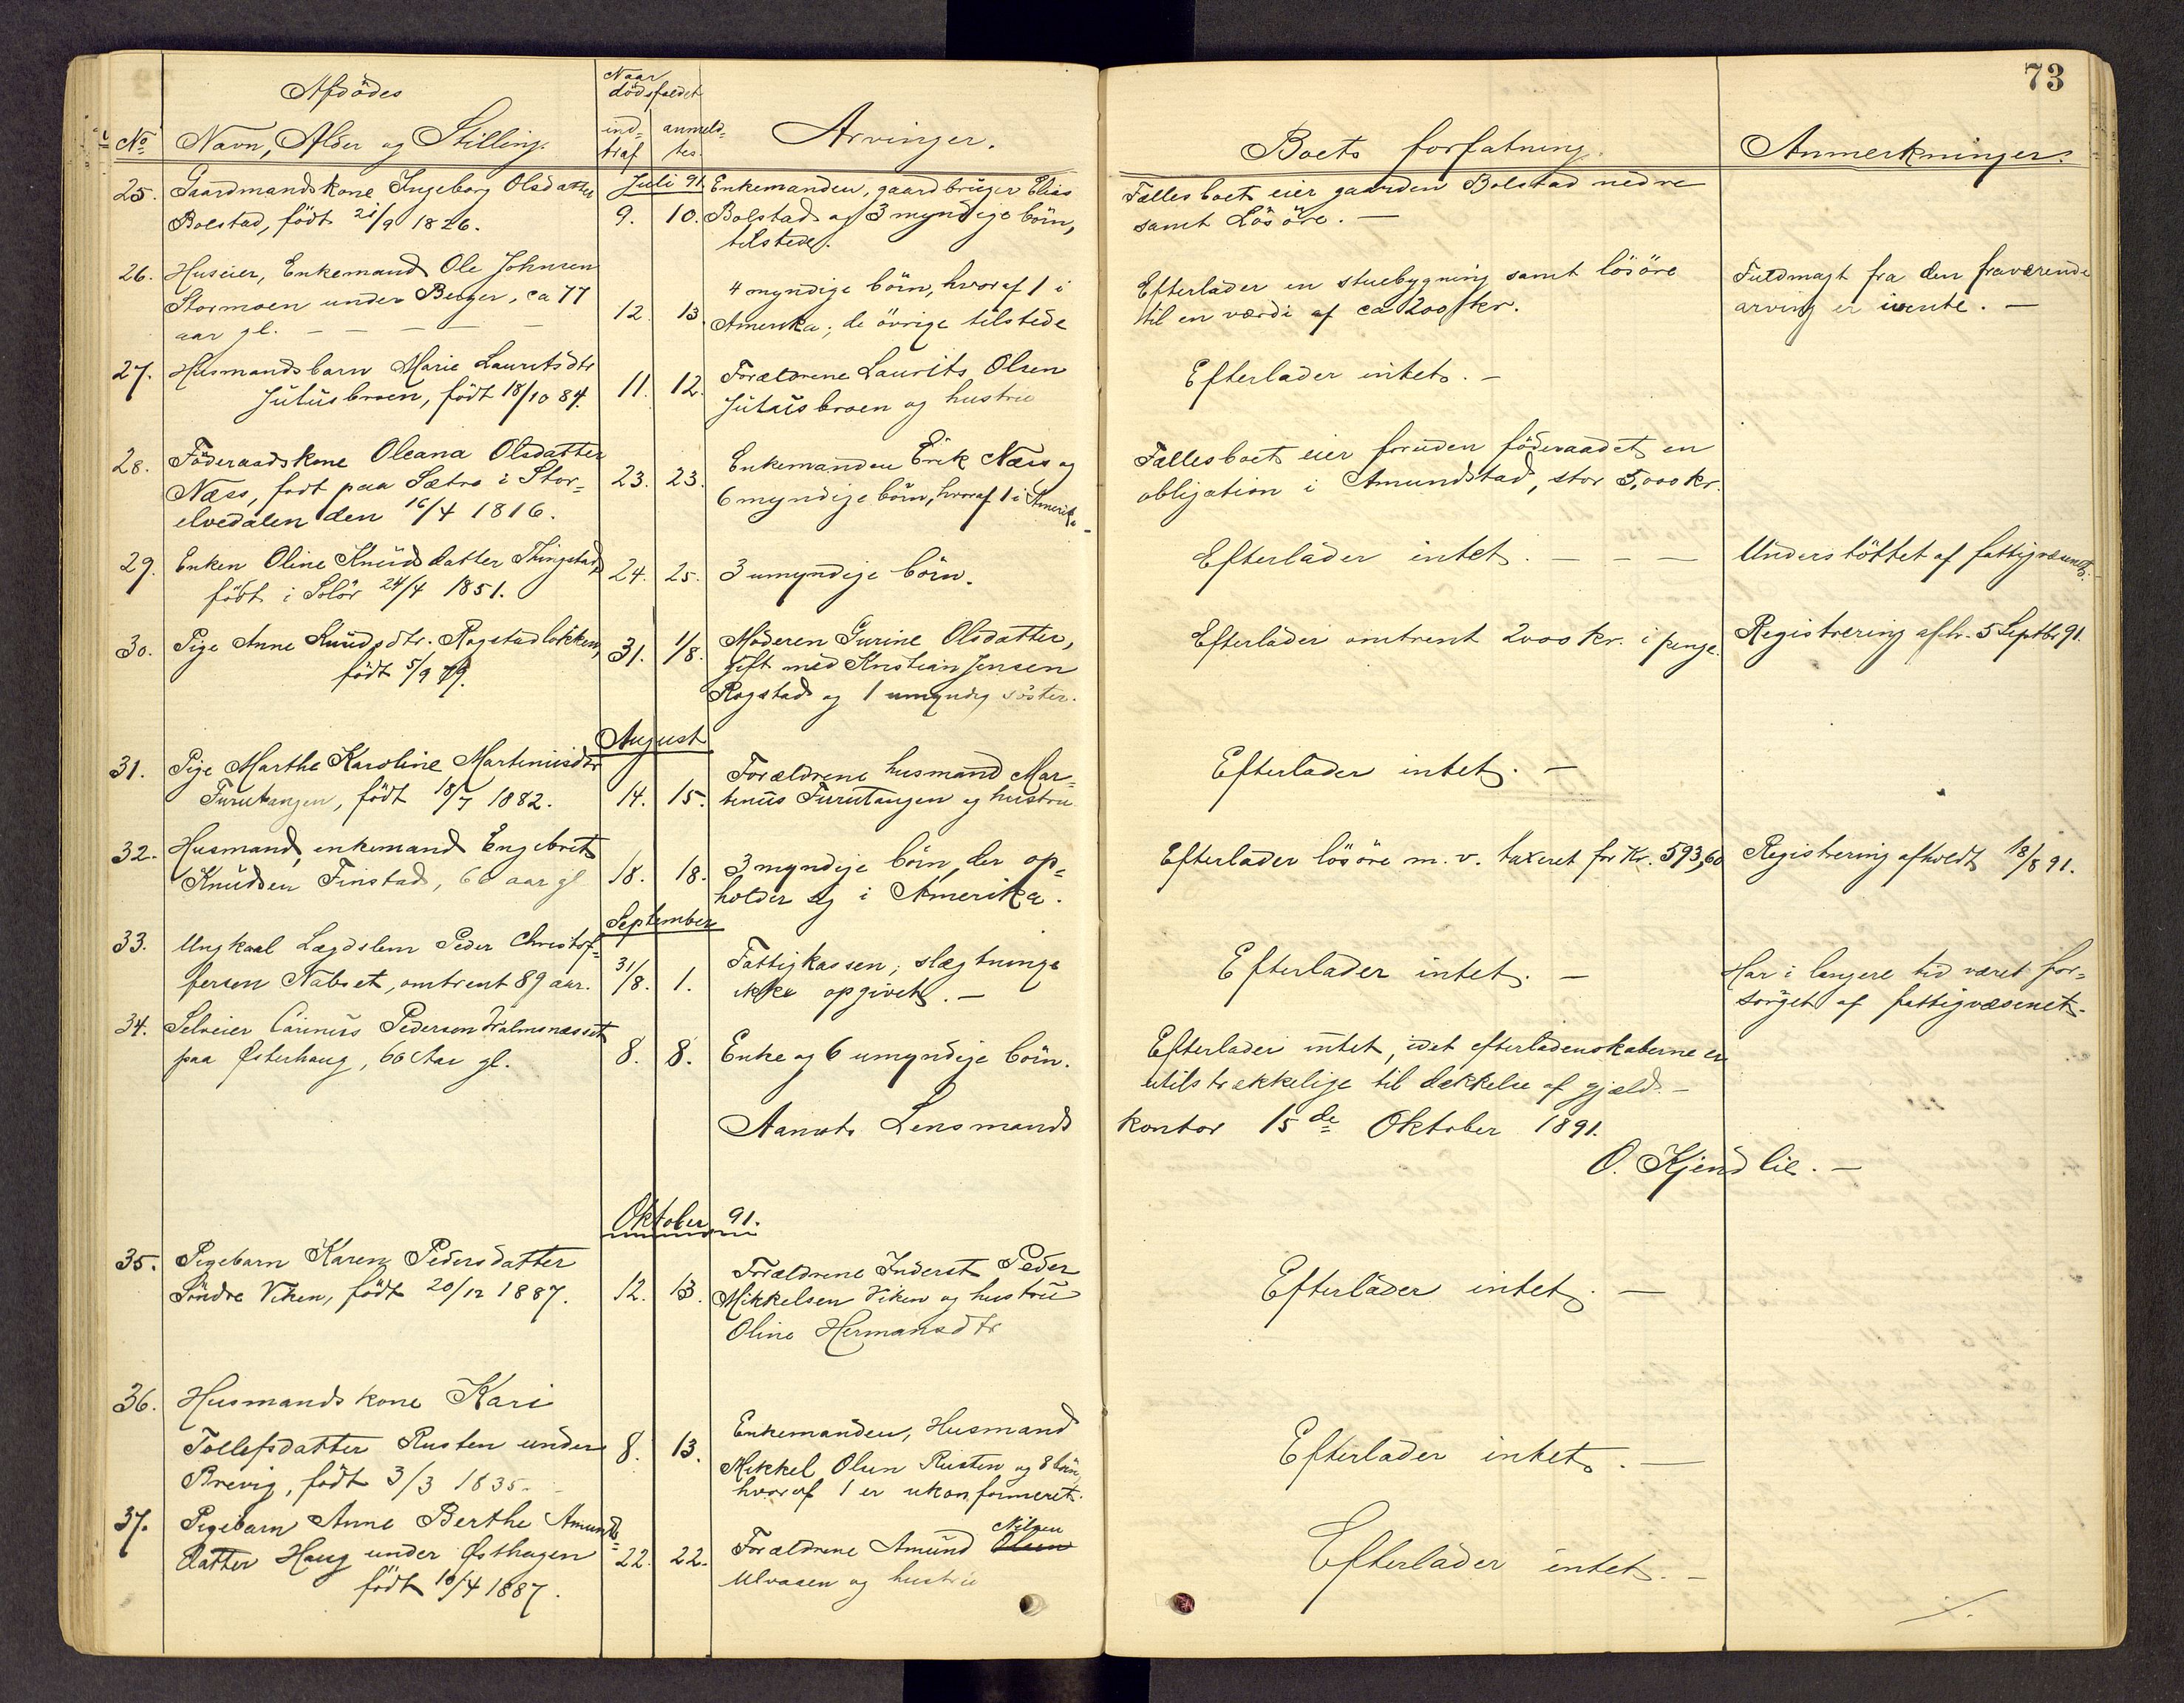 73
Afdödes
Naar
dödsfaldet
No Navn, Alder og Stilling.
ind-
traf
anmeld-
tes.
Arvinger.
Boets forfatning.
Anmerkninger.
Juli 91.
25. Gaardmandskone Ingeborg Olsdatter
Bolstad, födt 21/9 1826.
9. 10.
Enkemanden, gaardbruger Elias
Bolstad og 3 myndige börn,
tilstede.
Fællesboet eier gaarden Bolstad nedre
samt Lösöre. —
26. Huseier, Enkemand Ole Johnsen
Stormoen under Berger, ca 77
aar gl. — — — —
12. 13.
4 myndige börn, hvoraf 1 i
Amerika; de övrige tilstede
Efterlader en stuebygning samt lösöre
til en værdi af ca 200 kr.
Fuldmagt fra den fraværende
arving er ivente. —
27. Husmandsbarn Marie Lauritsdtr
Julusbroen, födt 18/10 84.
11. 12.
Forældrene Laurits Olsen
Julusbroen og hustru
Efterlader intet. —
28. Föderaadskone Oleana Olsdatter
Næss, födt paa Sætre i Stor-
elvedalen den 16/4 1816.
23. 23.
Enkemanden Erik Næss og
6 myndige börn, hvoraf 1 i Amerika
Fællesboet eier foruden föderaadet en
obligation i Amundstad, stor 5,000 kr.
29. Enken Oline Knudsdatter Thingstad,
födt i Solör 24/4 1851.
24. 25.
3 umyndige börn.
Efterlader intet. — — —
Understöttet af fattigvæsenet.
30. Pige Anne Knudsdtr. Rogstadløkken,
födt 5/9 79.
31. 1/8.
Moderen Gurine Olsdatter,
gift med Kristian Jensen
Rogstad og 1 umyndig söster.
Efterlader omtrent 2000 kr. i penge.
Registrering afh. 5 Septbr 91.
August
31. Pige Marthe Karoline Martinusdtr
Furutangen, födt 18/7 1882.
14. 15.
Forældrene husmand Mar-
tinus Furutangen og hustru
Efterlader intet. —
32. Husmand, enkemand Engebret
Knudsen Finstad, 60 aar gl
18. 18.
3 myndige börn, der op-
holder sig i Amerika.
Efterlader lösöre m. v. taxeret for Kr. 593,60
Registrering afholdt 18/8 91.
September
33. Ungkarl Lægdslem Peder Christof-
fersen Nabset, omtrent 89 aar.
31/8. 1.
Fattigkassen; slægtninge
ikke opgivet. —
Efterlader intet. —
Har i længere tid været for-
sörget af fattigvæsenet.
34. Selveier Carinus Pedersen Malmnæsset
paa Østerhaug, 60 Aar gl.
8. 8.
Enke og 6 umyndige börn.
Efterlader intet, idet efterladenskaberne er
utilstrækkelige til dækkelse af gjæld. —
Aamots Lensmandskontor 15de Oktober 1891.
O. Kjendlie. —
Oktober 91.
35. Pigebarn Karen Pedersdatter
Söndre Viken, födt 20/12 1887.
12. 13.
Forældrene Inderst Peder
Mikkelsen Viken og hustru
Oline Hermansdtr
Efterlader intet. —
36. Husmandskone Kari
Tollefsdatter Rusten under
Brevig, födt 3/3 1835.
8. 13.
Enkemanden, Husmand
Mikkel Olsen Rusten og 8 börn,
hvoraf 1 er ukonfirmeret.
Efterlader intet. —
37. Pigebarn Anne Berthe Amunds-
datter Haug under Østhagen
födt 10/4 1887.
22. 22.
Forældrene Amund Olsen Nilsen
Ulvaaen og hustru
Efterlader intet. —